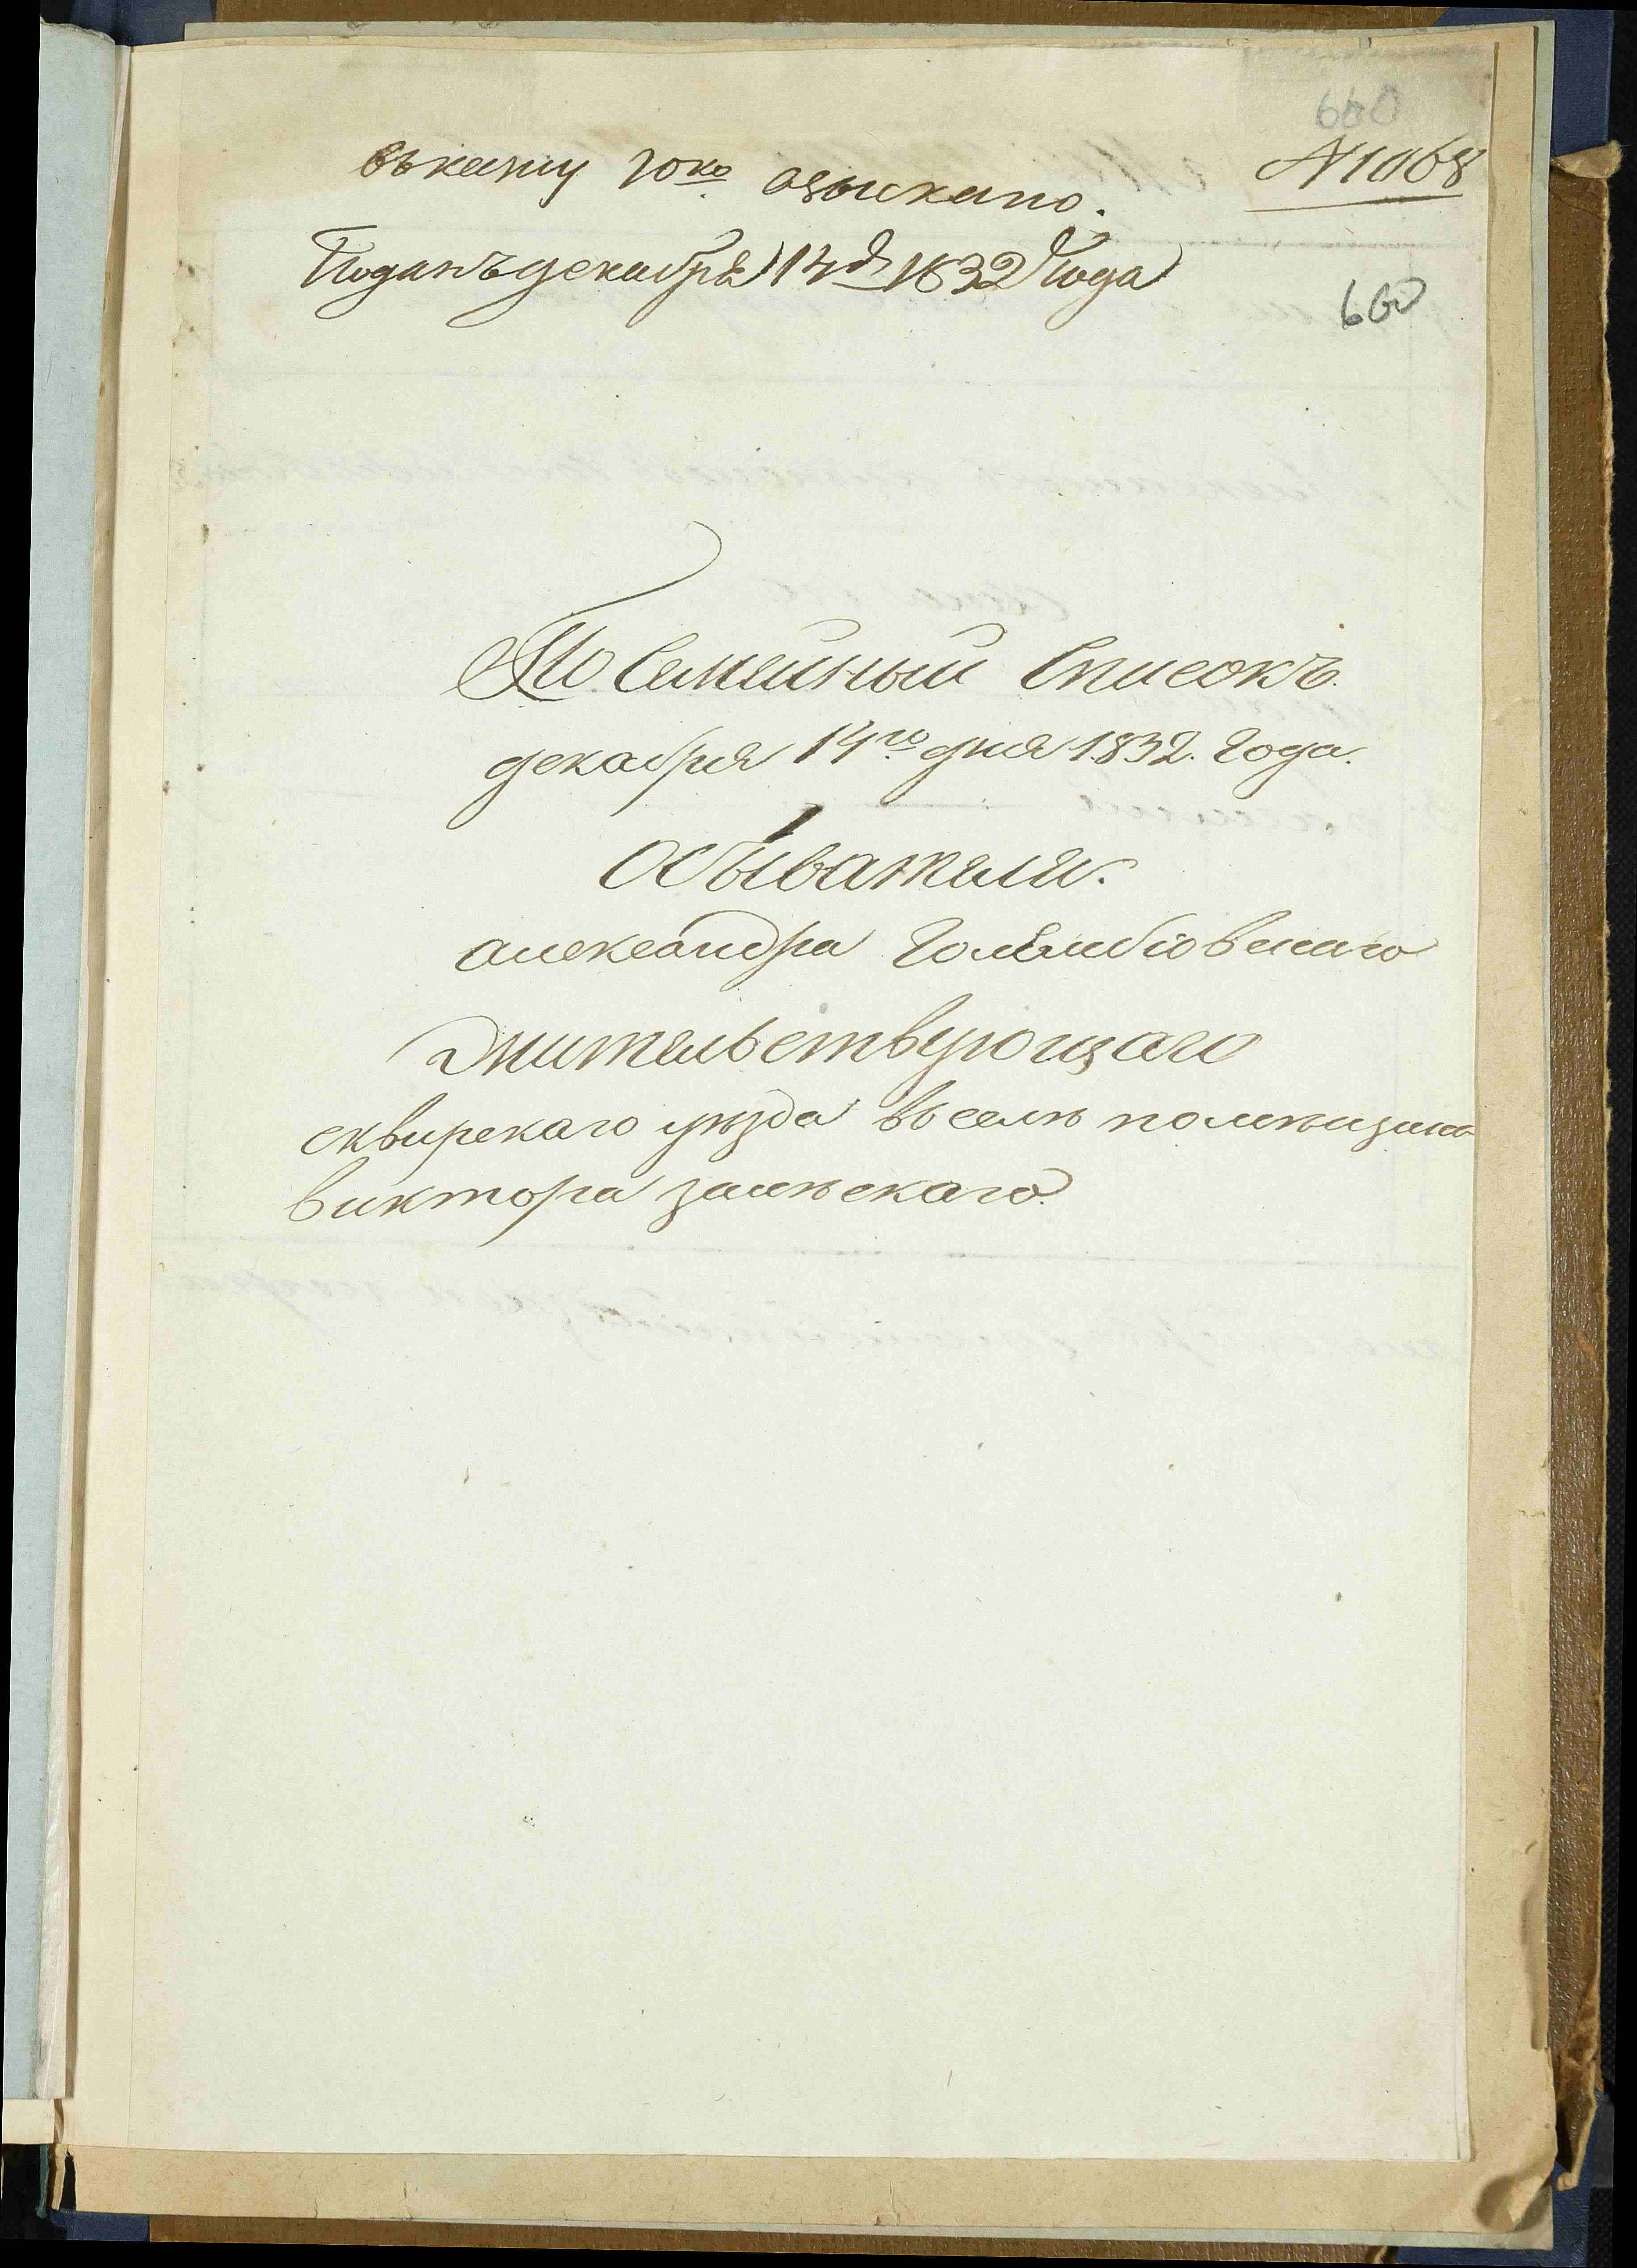 660
N 1068
въ казну 10ко взыскано.
Поданъ декабря 14 д 1832 года
660
По Семейный Списокъ.
декабря 14го дня 1832. года.
Обывателя.
александра Голембіовскаго
Жительствующаго
сквирскаго уезда въ селѣ помѣщика
виктора залѣскаго.